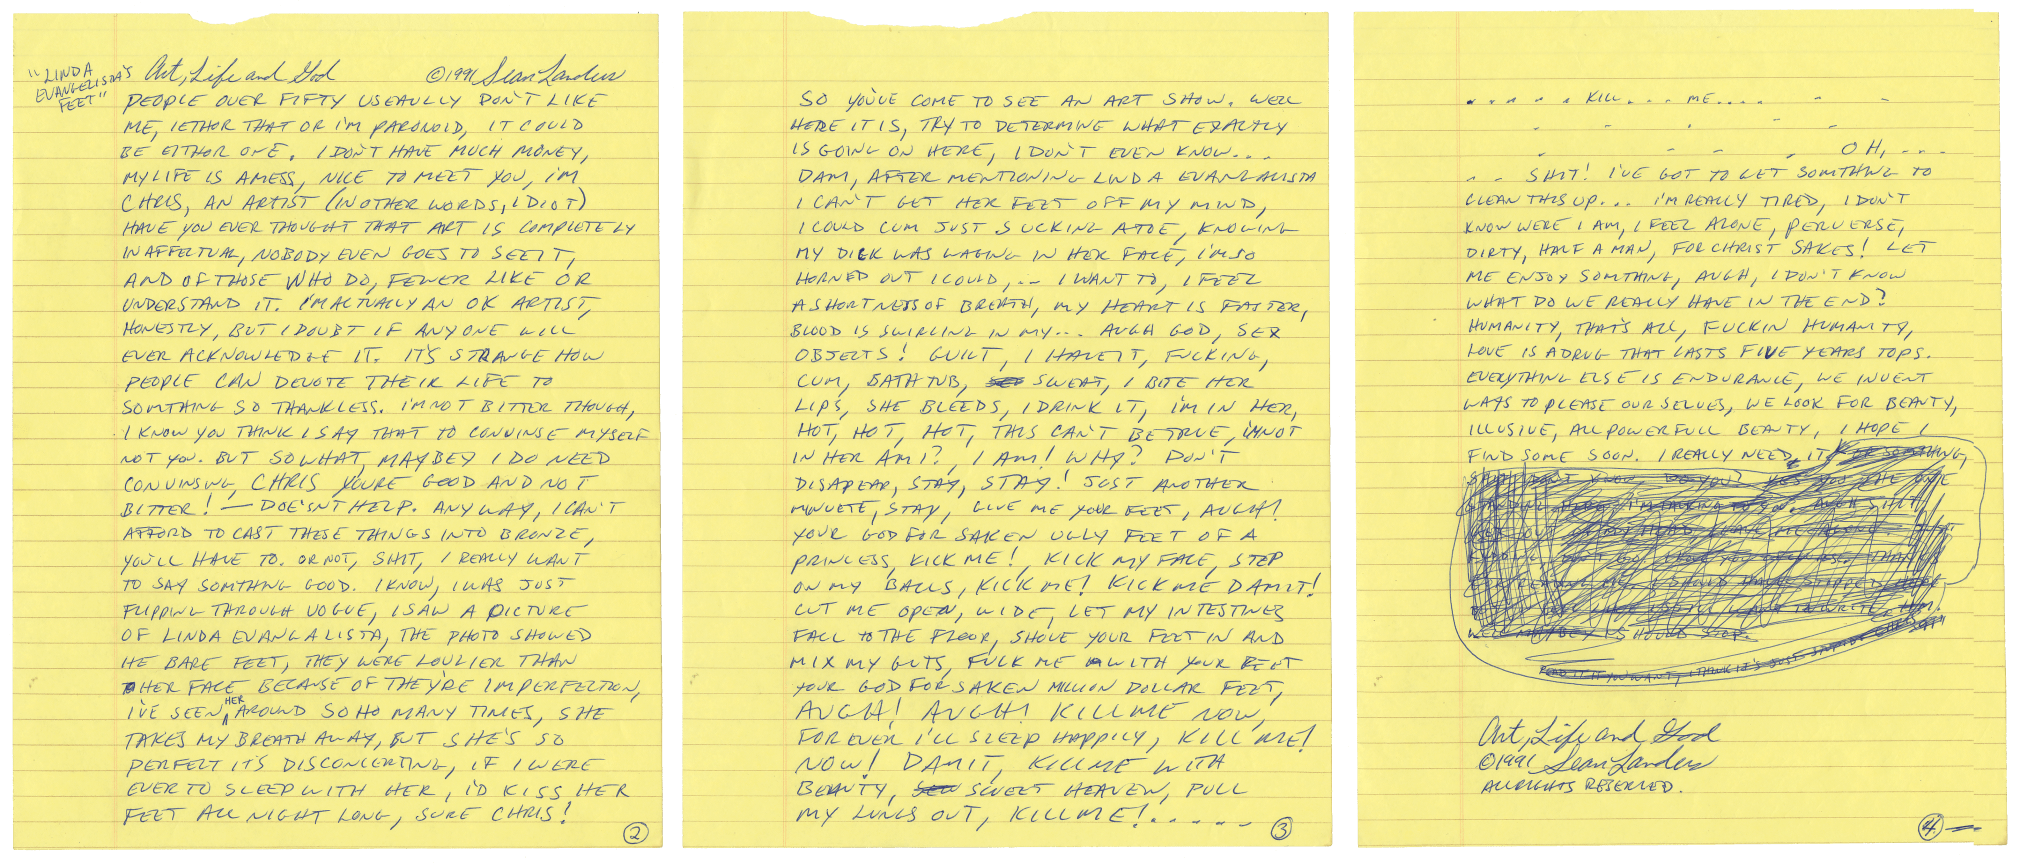 "LINDA
EVANGELISTA'S
FEET"
Art, Life and God ©1991 Sean Landers
PEOPLE OVER FIFTY USEAULLY DON'T LIKE
ME, IETHOR THAT OR I'M PARONOID, IT COULD
BE EITHOR ONE. I DON'T HAVE MUCH MONEY,
MY LIFE IS A MESS, NICE TO MEET YOU, I'M
CHRIS, AN ARTIST (IN OTHER WORDS, IDIOT)
HAVE YOU EVER THOUGHT THAT ART IS COMPLETELY
INAFFECTUAL, NOBODY EVEN GOES TO SEE IT,
AND OF THOSE WHO DO, FEWER LIKE OR
UNDERSTAND IT. I'M ACTUALLY AN OK ARTIST,
HONESTLY, BUT I DOUBT IF ANYONE WILL
EVER ACKNOWLEDGE IT. IT'S STRANGE HOW
PEOPLE CAN DEVOTE THEIR LIFE TO
SOMTHING SO THANKLESS. I'M NOT BITTER THOUGH,
I KNOW YOU THINK I SAY THAT TO CONVINSE MYSELF
NOT YOU. BUT SO WHAT, MAYBEY I DO NEED
CONVINSING, CHRIS YOURE GOOD AND NOT
BITTER! — DOE'SNT HELP. ANYWAY, I CAN'T
AFFORD TO CAST THESE THINGS INTO BRONZE,
YOU'LL HAVE TO. OR NOT, SHIT, I REALLY WANT
TO SAY SOMTHING GOOD. I KNOW, I WAS JUST
FLIPPING THROUGH VOGUE, I SAW A PICTURE
OF LINDA EVANGALISTA, THE PHOTO SHOWED
HE BARE FEET, THEY WERE LOVLIER THAN
HER FACE BECAUSE OF THEY'RE IMPERFECTION,
I'VE SEEN HER AROUND SOHO MANY TIMES, SHE
TAKES MY BREATH AWAY, BUT SHE'S SO
PERFECT IT'S DISCONCERTING, IF I WERE
EVER TO SLEEP WITH HER, I'D KISS HER
FEET ALL NIGHT LONG, SURE CHRIS!
2
SO YOU'VE COME TO SEE AN ART SHOW. WELL
HERE IT IS, TRY TO DETERMINE WHAT EXACTLY
IS GOING ON HERE, I DON'T EVEN KNOW...
DAM, AFTER MENTIONING LINDA EVANGALISTA
I CAN'T GET HER FEET OFF MY MIND,
I COULD CUM JUST SUCKING A TOE, KNOWING
MY DICK WAS WAGING IN HER FACE, I'M SO
HORNED OUT I COULD,... I WANT TO, I FEEL
A SHORTNESS OF BREATH, MY HEART IS FASTER,
BLOOD IS SWIRLING IN MY... AUGH GOD, SEX
OBJECTS! GUILT, I HAVE IT, FUCKING,
CUM, BATHTUB, SWEAT, I BITE HER
LIPS, SHE BLEEDS, I DRINK IT, I'M IN HER,
HOT, HOT, HOT, THIS CAN'T BE TRUE, I'M NOT
IN HER AM I?, I AM! WHY? DON'T
DISAPEAR, STAY, STAY! JUST ANOTHER
MINUETE, STAY, GIVE ME YOUR FEET, AUGH!
YOUR GOD FOR SAKEN UGLY FEET OF A
PRINCESS, KICK ME! KICK MY FACE, STEP
ON MY BALLS, KICK ME! KICK ME DAMIT!
CUT ME OPEN, WIDE, LET MY INTESTINES
FALL TO THE FLOOR, SHOVE YOUR FEET IN AND
MIX MY GUTS, FUCK ME WITH YOUR FEET
YOUR GOD FOR SAKEN MILLION DOLLAR FEET,
AUGH! AUGH! KILL ME NOW,
FOREVER I'LL SLEEP HAPPILY, KILL ME!
NOW! DAMIT, KILL ME WITH
BEAUTY, SWEET HEAVEN, PULL
MY LUNGS OUT, KILL ME!.....
3
. . . . . KILL... ME....  .  .
. . . . .
. . . . OH, ...
.. SHIT! I'VE GOT TO GET SOMTHING TO
CLEAN THIS UP... I'M REALLY TIRED, I DON'T
KNOW WERE I AM, I FEEL ALONE, PERVERSE,
DIRTY, HALF A MAN, FOR CHRIST SAKES! LET
ME ENJOY SOMTHING, AUGH, I DON'T KNOW
WHAT DO WE REALLY HAVE IN THE END?
HUMANITY, THAT'S ALL, FUCKIN HUMANITY,
LOVE IS A DRUG THAT LASTS FIVE YEARS TOPS.
EVERYTHING ELSE IS ENDURANCE, WE INVENT
WAYS TO PLEASE OUR SELVES, WE LOOK FOR BEAUTY,
ILLUSIVE, ALL POWERFULL BEAUTY, I HOPE I
FIND SOME SOON. I REALLY NEED IT OR SOMTHING,
KNOW, DO YOU? YES YOU THE ONE
I'M TALKING TO YOU. AUGH SHIT!
WELL MAYBEY I SHOULD STOP.
READ IT IF YOU WANT, I THINK IT'S JUST STUPID
Art, Life and God
©1991 Sean Landers
ALL RIGHTS RESERVED.
4